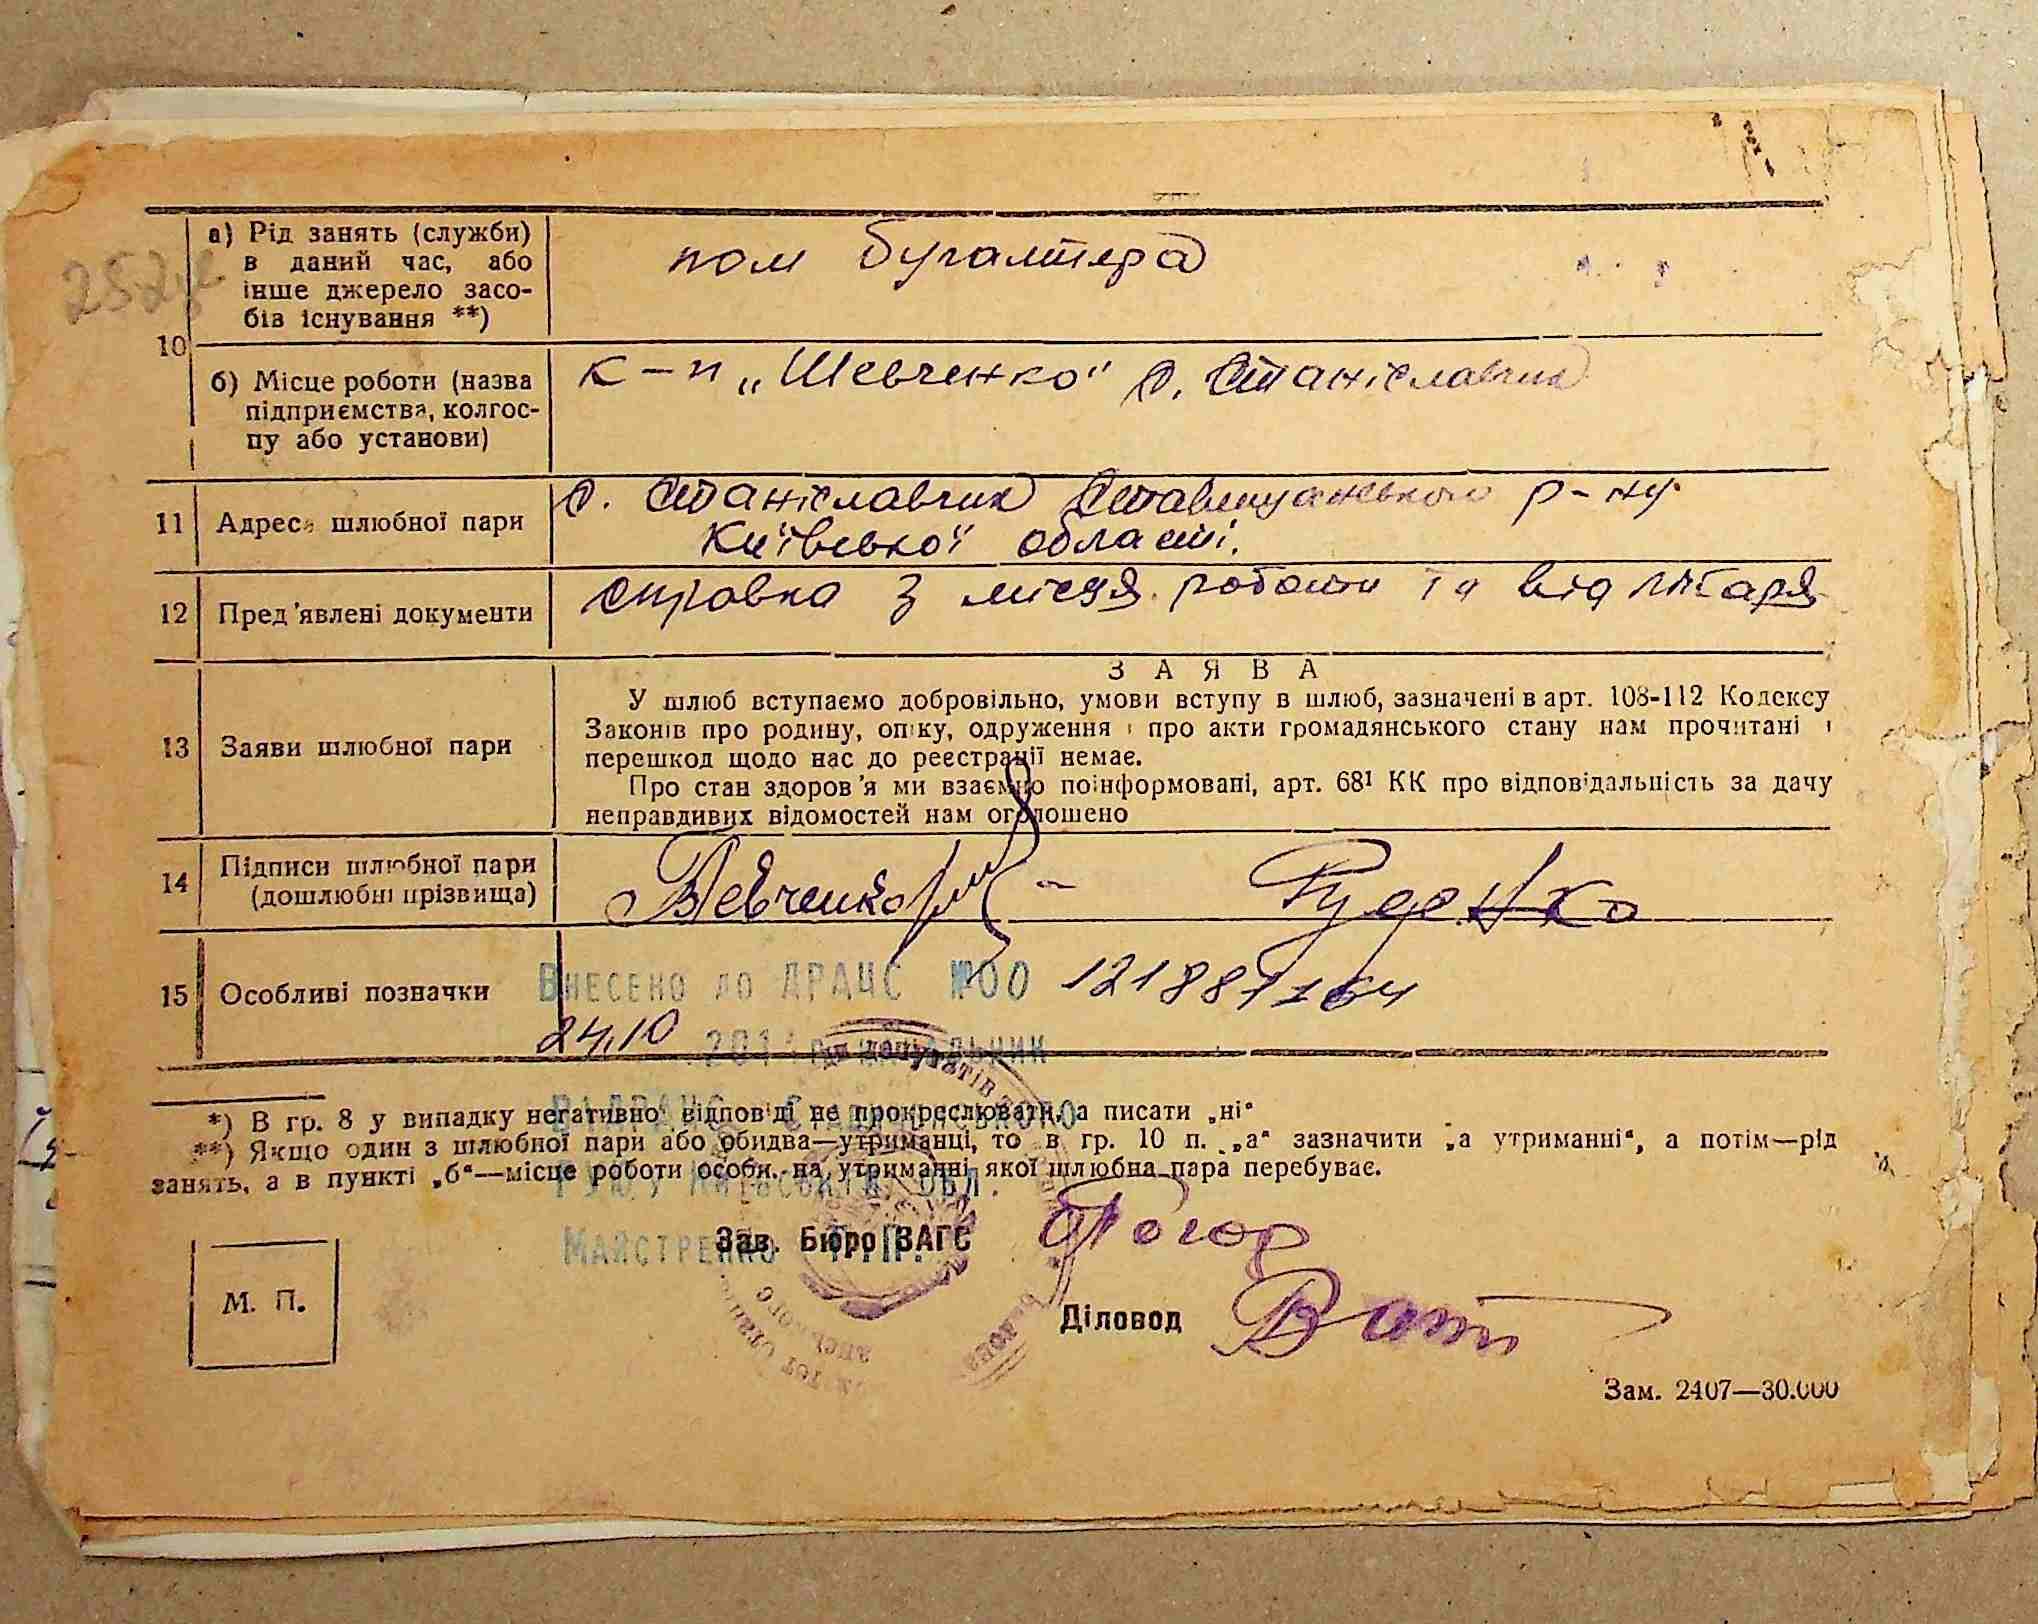 252
10
а) Рід занять (служби)
в даний час, або
інше джерело засо-
бів існування **)
пом бугалтера
б) Місце роботи (назва
підприємства, колгос-
пу або установи)
к-п „Шевченко“ с. Станіславчик
11 Адреса шлюбної пари
с. Станіславчик Ставищанського р-ну
Київської області.
12 Пред'явлені документи
справка з місця роботи та від лікаря
13 Заяви шлюбної пари
ЗАЯВА
У шлюб вступаємо добровільно, умови вступу в шлюб, зазначені в арт. 108-112 Кодексу
Законів про родину, опіку, одруження і про акти громадянського стану нам прочитані і
перешкод щодо нас до реєстрації немає.
Про стан здоров'я ми взаємно поінформовані, арт. 68¹ КК про відповідальність за дачу
неправдивих відомостей нам оголошено
14 Підписи шлюбної пари
(дошлюбні прізвища)
Шевченко Руденко
15 Особливі позначки
Внесено до ДРАЦС №00 121887164
24.10 201 начальник
Ставищенського
Київській обл.
Майстренко
*) В гр. 8 у випадку негативної відповіді не прокреслювати, а писати „ні“
**) Якщо один з шлюбної пари або обидва—утриманці, то в гр. 10 п. „а“ зазначити „а утриманні“, а потім—рід
занять, а в пункті „б“—місце роботи особи, на утриманні якої шлюбна пара перебуває.
Зав. Бюро ЗАГС
Діловод
М. П.
Зам. 2407—30.000